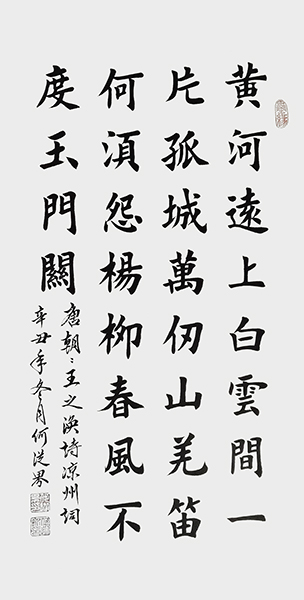 黄河遠上白雲間一
片孤城萬仞山羌笛
何須怨楊柳春風不
度玉門關
唐朝:王之渙詩涼州詞
辛丑年冬月何從界